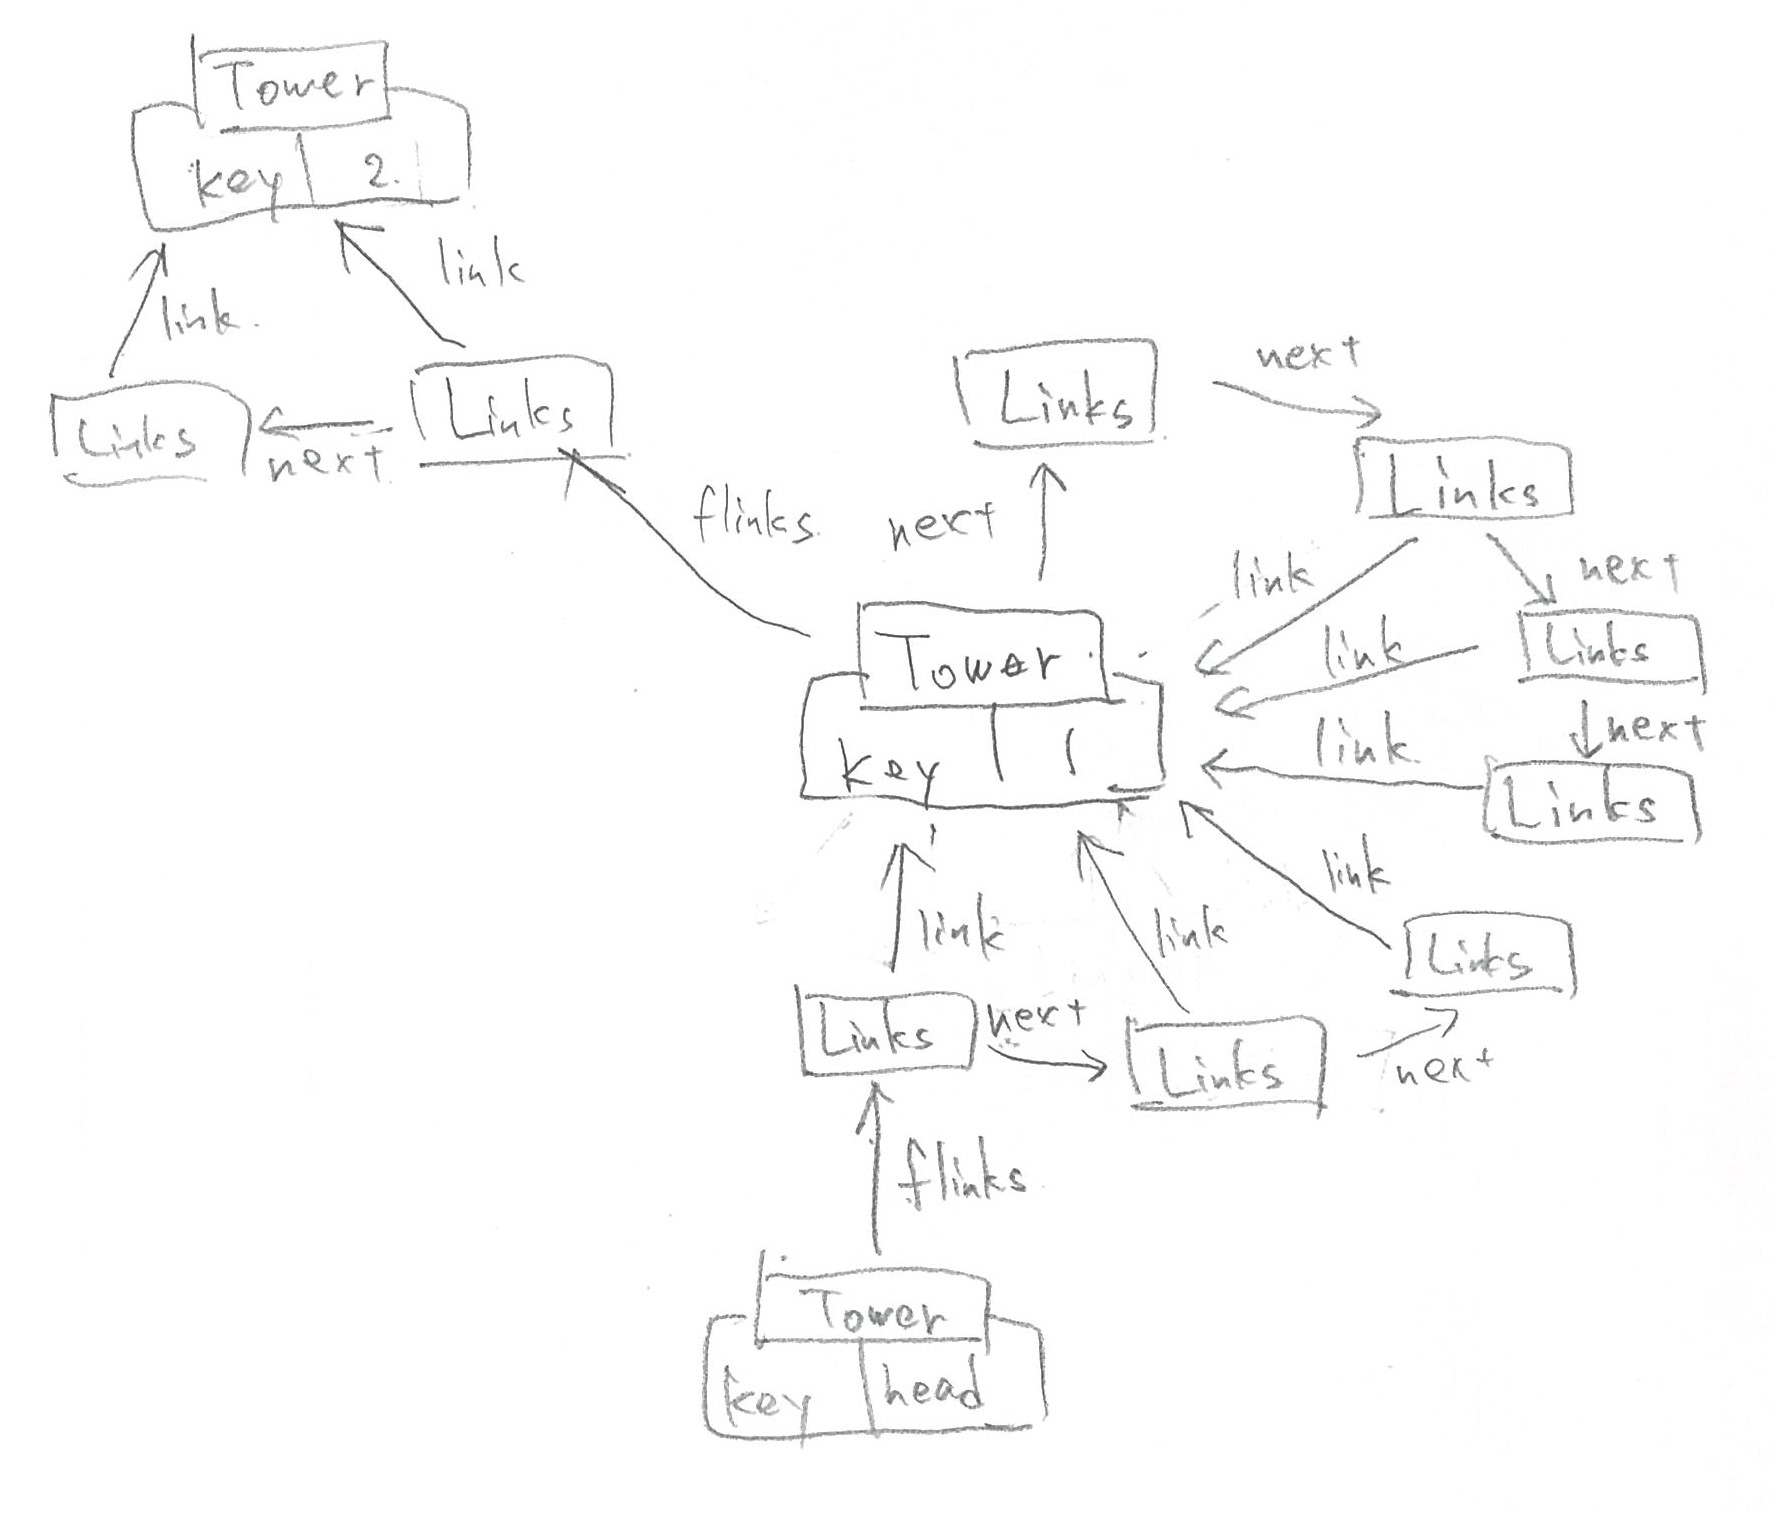 Tower
key 2.
link
link.
Links
next
Links
flinks.
next
Links
next
Links
link
next
link
Links
next
link.
Links
Tower
key 1
link
Links
link
link
Links
next
Links
next
flinks
Tower
key head